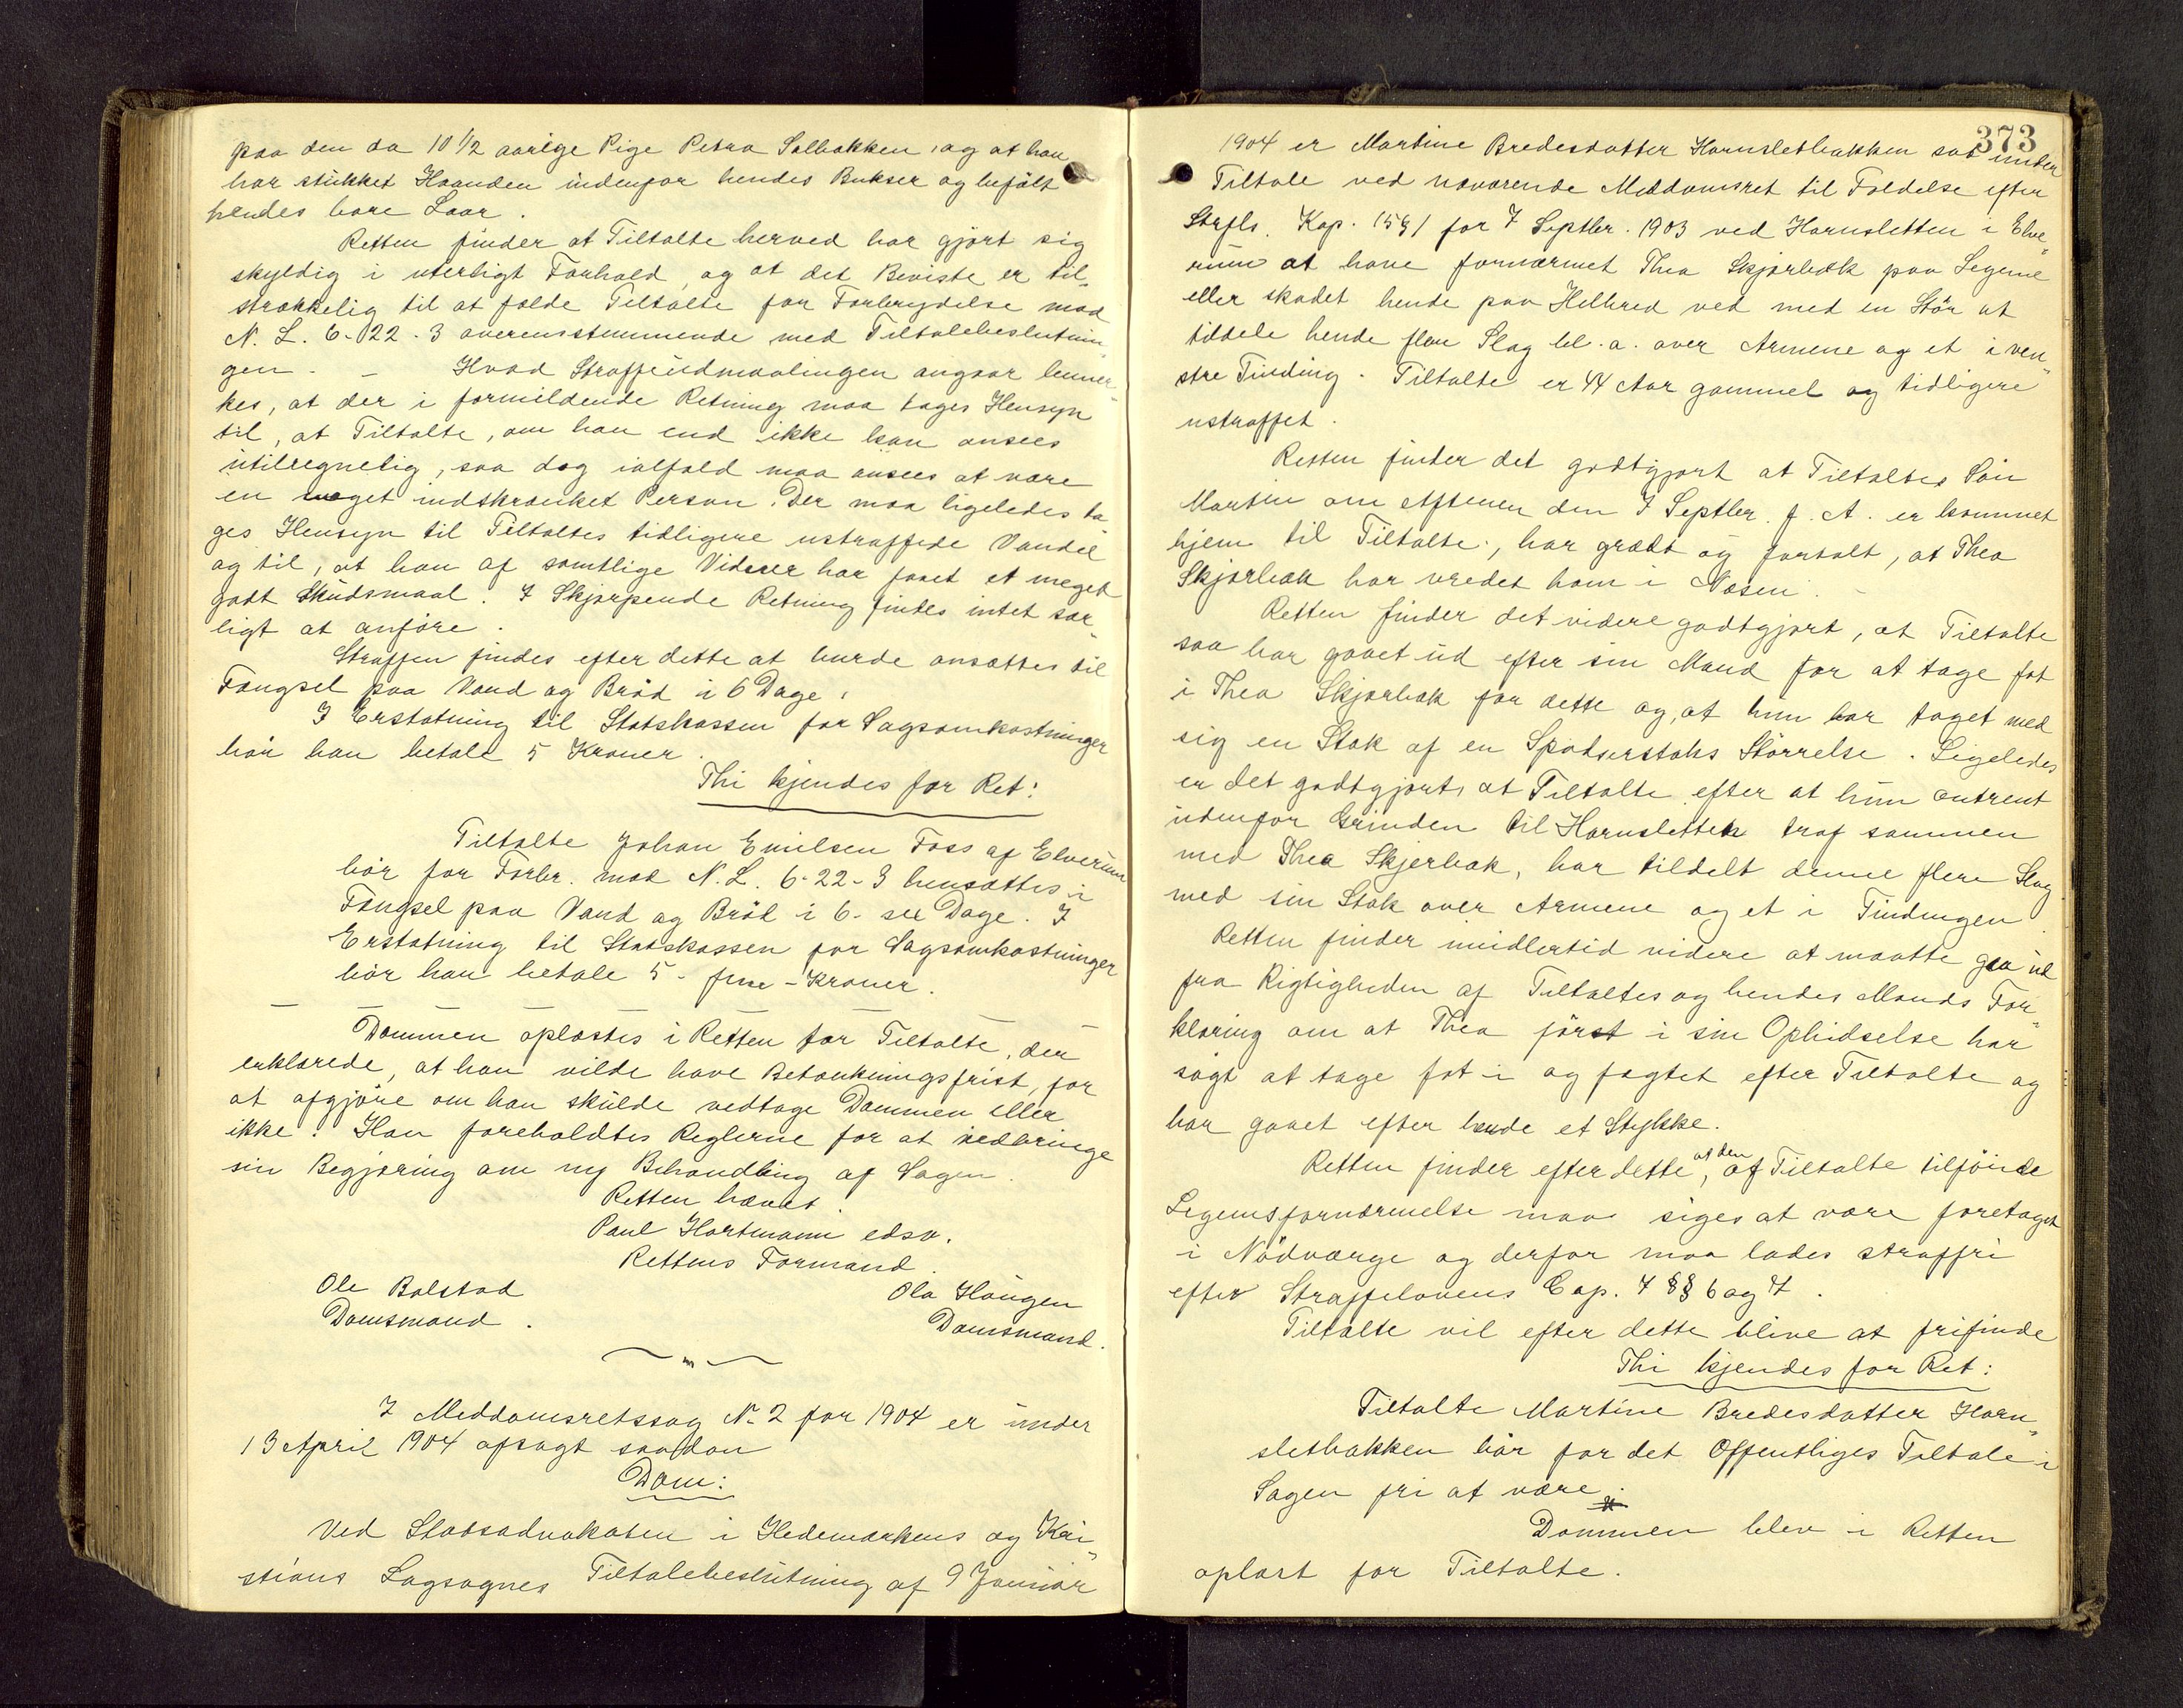 paa den da 10 1/2 aarige Pige Petra Solbakken, og at han
har stukket Haanden indenfor hendes Bukser og befølt
hendes bare Laar.
Retten finder at Tiltalte herved har gjort sig
skyldig i uterligt Forhold, og at det Beviste er til„
strækkelig til at fælde Tiltalte for Forbrydelse mod
N. L. 6-22-3 overensstemmende med Tiltalebeslutnin„
gen. – Hvad Straffeudmaalingen angaar bemær„
kes, at der i formildende Retning maa tages Hensyn
til, at Tiltalte, om han end ikke kan ansees
utilregnelig, saa dog ialfald maa ansees at være
en meget indskrænket Person. Der maa ligeledes ta„
ges Hensyn til Tiltaltes tidligere ustraffede Vandel
og til, at han af samtlige Vidner har faaet et meget
godt Skudsmaal. I Skjærpende Retning findes intet sær„
ligt at anføre.
Straffen findes efter dette at burde ansættes til
Fængsel paa Vand og Brød i 6 Dage.
I Erstatning til Statskassen for Sagsomkostninger
bør han betale 5 Kroner.
Thi kjendes for Ret:
Tiltalte Johan Emilsen Foss af Elverum
bør for Forbr. mod N. L. 6-22-3 hensættes i
Fængsel paa Vand og Brød i 6- sex Dage. I
Erstatning til Statskassen for Sagsomkostninger
bør han betale 5- fem -Kroner.
Dommen oplæstes i Retten for Tiltalte, der
erklærede, at han vilde have Betænkningsfrist, for
at afgjøre om han skulde vedtage Dommen eller
ikke. Han foreholdtes Reglerne for at indbringe
sin Begjæring om ny Behandling af Sagen.
Retten hævet.
Paul Hartmann edsv.
Rettens Formand.
Ole Bolstad Ola Haugen
Domsmand. Domsmand.
I Meddomsretssag No 2 for 1904 er under
13 April 1904 afsagt saadan
Dom:
Ved Statsadvokaten i Hedemarkens og Kri„
stians Lagsognes Tiltalebeslutning af 9 Januar
373
1904 er Martine Bredesdatter Hornsletbakken sat under
Tiltale ved nærværende Meddomsret til Fældelse efter
Strfls. Kap. 15 § 1 for 7 Septbr. 1903 ved Hornsletten i Elve„
rum at have fornærmet Thea Skjærbæk paa Legeme
eller skadet hende paa Helbred ved med en Stør at
tildele hende flere Slag bl. a. over Armene og et i ven„
stre Tinding. Tiltalte er 44 Aar gammel og tidligere
ustraffet.
Retten finder det godtgjort at Tiltaltes Søn
Martin om Aftenen den 7 Septbr. f. A. er kommet
hjem til Tiltalte, har grædt og fortalt, at Thea
Skjærbæk har vredet ham i Næsen. –
Retten finder det videre godtgjort, at Tiltalte
saa har gaaet ud efter sin Mand for at tage fat
i Thea Skjærbæk for dette og, at hun har taget med
sig en Stok af en Spadserstoks Størrelse. Ligeledes
er det godtgjort, at Tiltalte efter at hun omtrent
udenfor Grinden til Hornsletten traf sammen
med Thea Skjerbæk, har tildelt denne flere Slag
med sin Stok over Armene og et i Tindingen.
Retten finder imidlertid videre at maatte gaa ud
fra Rigtigheden af Tiltaltes og hendes Mands For„
klaring om at Thea først i sin Ophidselse har
søgt at tage fat i og fægtet efter Tiltalte og
har gaaet efter hende et Stykke.
Retten finder efter dette, at den af Tiltalte tilføiede
Legemsfornærmelse maa siges at være foretaget
i Nødværge og derfor maa lades straffri
efter Straffelovens Cap. 7 §§ 6 og 7.
Tiltalte vil efter dette blive at frifinde
Thi kjendes for Ret:
Tiltalte Martine Bredesdatter Horn„
sletbakken bør for det Offentliges Tiltale i
Sagen fri at være.
Dommen blev i Retten
oplæst for Tiltalte.